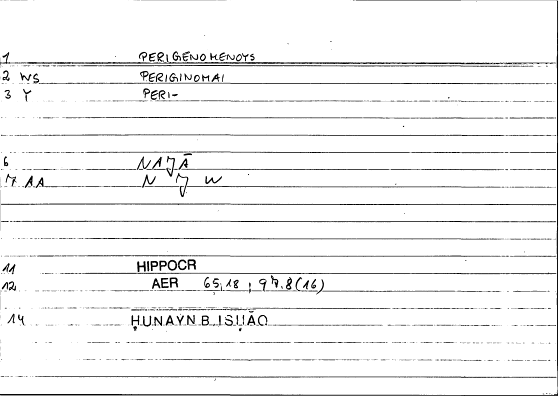 1 PERIGENOMENOYS
2 WS PERIGINOMAI
3 Y PERI-
6 NAJĀ
7 AA N J W
11 HIPPOCR
12 AER 65,18 ; 97.8(16)
14 ḤUNAYN B. ISḤĀQ